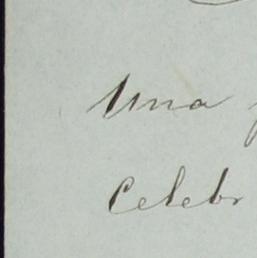 Una
Celebr